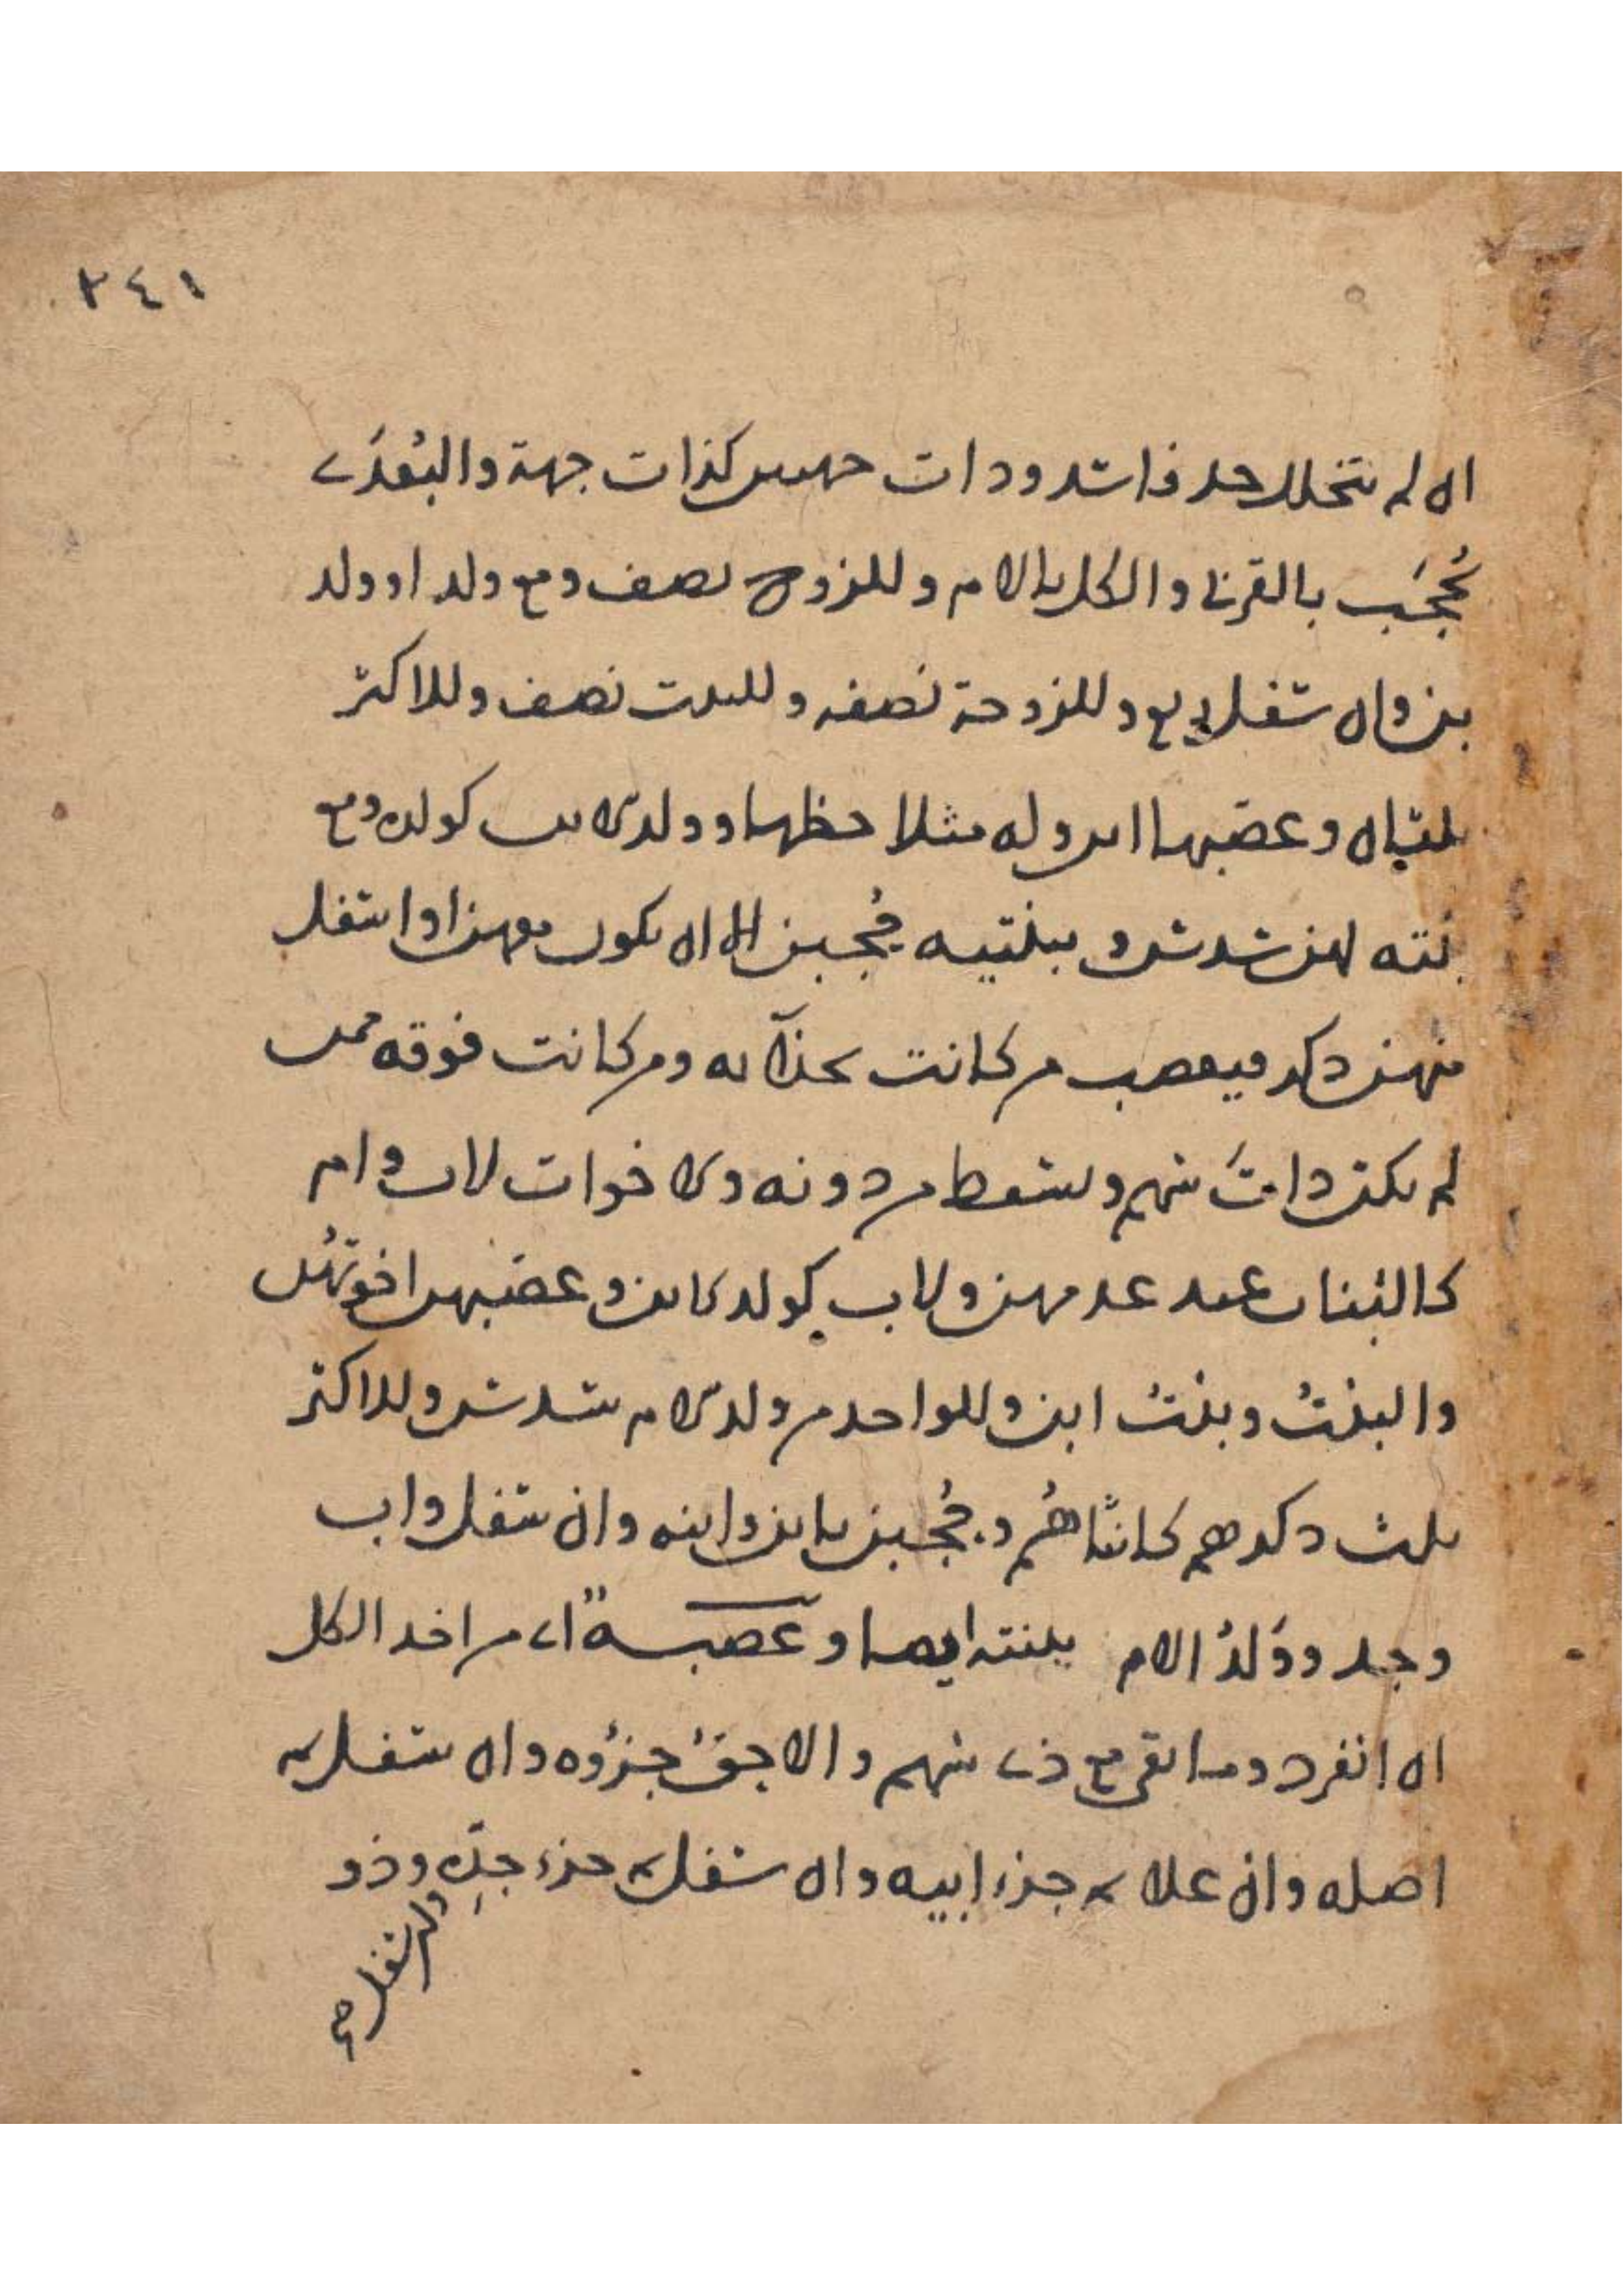 ٢٤١
ان لم يتخلل جد فاسد وذات جهتين كذات جهة والبُعدَى
تُحجَب بالقربى والكل بالام وللزوج نصف ومع ولد او ولد
بن وان سفل ربع وللزوجة نصفه وللبنت نصف وللاكثر
ثلثان وعصبها ابن وله مثلا حظها وولد الابن كولده ومع
بنته لهن سدس وببنتيه حُجبن الا ان يكون معهن او اسفل
منهن ذكر فيعصب من كانت بحذآئه ومن كانت فوقه ممن
لم تكن ذات سهم ويسقط من دونه والاخوات لاب وام
كالبنات عند عدمهن ولاب كولد الابن وعصبهن اخوتهُن
والبنتُ وبنتُ ابن وللواحد من ولد الام سدس وللاكثر
ثلث ذكرهم كانثاهُم وحُجبن بابن وابنه وان سفل واب
وجد ووَلدُ الام ببنته ايضا وعَصَبةٌ اى من اخذ الكل
ان انفرد وما بقى مع ذى سهم والاحقُ جزؤه وان سفل ثم
اصله وان علا ثم جزء ابيه وان سفل ثم جزء جدِّه وذو